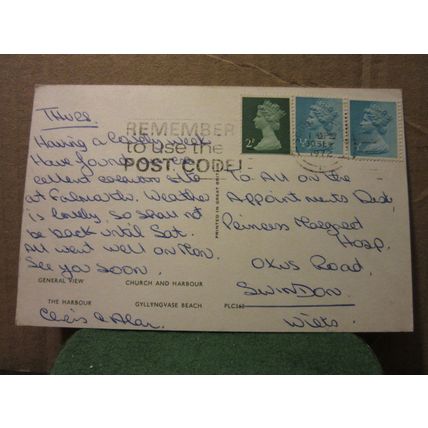 Thurs.
Having a lovely week
Have found an ex-
cellent caravan site
at Falmouth. Weather
is lovely, so shall not
be back until Sat.
All went well on Mon.
See you soon.
GENERAL VIEW CHURCH AND HARBOUR
THE HARBOUR GYLLYNGVASE BEACH PLC362
Chris & Alan.
PRINTED IN GREAT
REMEMBER
to use the
POST CODE!
SEP
1972
2
To All on the
Appointments Desk,
Princess Margaret
Hosp.
Okus Road,
SWINDON
Wilts.